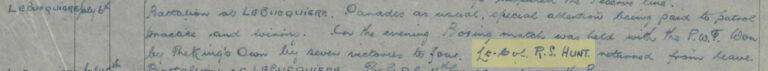 LEBUCQUIERE July 6th Battalion at LEBUCQUIERE. Parades as usual, special attention being paid to patrol
practice and wiring. In the evening Boxing match was held with the P.W.F. Won
by The King's Own by seven victories to four. Lt-Col. R.S. HUNT. returned from leave.
Battalion at LEBUCQUIERE.